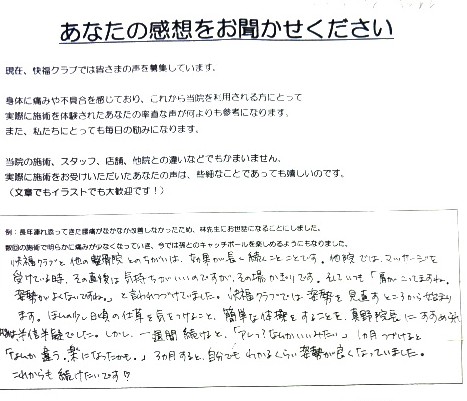 あなたの感想をお聞かせください
現在、快福クラブでは皆さまの声を募集しています。
身体に痛みや不具合を感じており、これから当院を利用される方にとって
実際に施術を体験されたあなたの率直な声が何よりも参考になります。
また、私たちにとっても毎日の励みになります。
当院の施術、スタッフ、店舗、他院との違いなどでもかまいません、
実際に施術をお受けいただいたあなたの声は、些細なことであっても嬉しいのです。
（文章でもイラストでも大歓迎です！）
例：長年連れ添ってきた腰痛がなかなか改善しなかったため、林先生にお世話になることにしました。
数回の施術で明らかに痛みが少なくなっていき、今では孫とのキャッチボールを楽しめるようにもなりました。
快福クラブと他の整骨院とのちがいは、効果が長く続くことです。他院では、マッサージを
受けている時、その直後は気持ちがいいのですが、その場かぎりです。そしていつも「肩がこってますね。
姿勢がよくないですね。」と言われつづけていました。快福クラブでは姿勢を見直すところから始まり
ます。ほんの少し日頃の仕草を気をつけること、簡単な体操をすることを、真野院長にすすめられ
半信半疑でした。しかし、一週間続けると、「アレっ？なんかいいみたい」1か月つづけると
「なんか違う。楽になったかも。」3か月すると、自分でもわかるくらい姿勢が良くなっていました。
これからも続けたいです♡